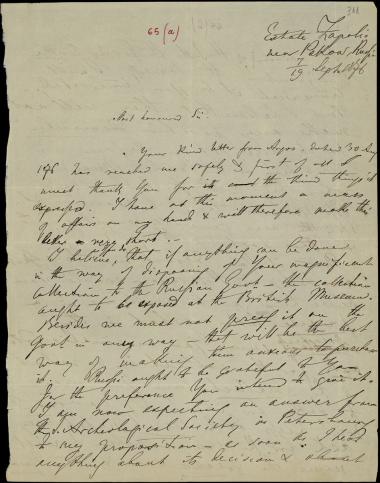 65 (a)
Estate Zapolie
near Pskow, Russia
7/19 Sept. 1876
Most honoured Sir.
Your kind letter from Argos, dated 30 Aug
1876 has reached me safely & first of all I
must thank you for it and the kind things
expressed. I have at this moment a mass
of affairs on my hand & will therefore make this
letter very short.
I believe, that if anything can be done
in the way of disposing of Your magnificent
collection to the Russian Govt – the collection
ought to be exposed at the British Museum.
Besides we must not press it on the
Govt in any way – that will be the best
way of making him anxious to purchase
it. Russia ought to be grateful to You
for the preference You intend to give it.
I am now expecting an answer from
the Archeological Society in Petersburg
to my proposition – as soon as I hear
anything about its decision & about